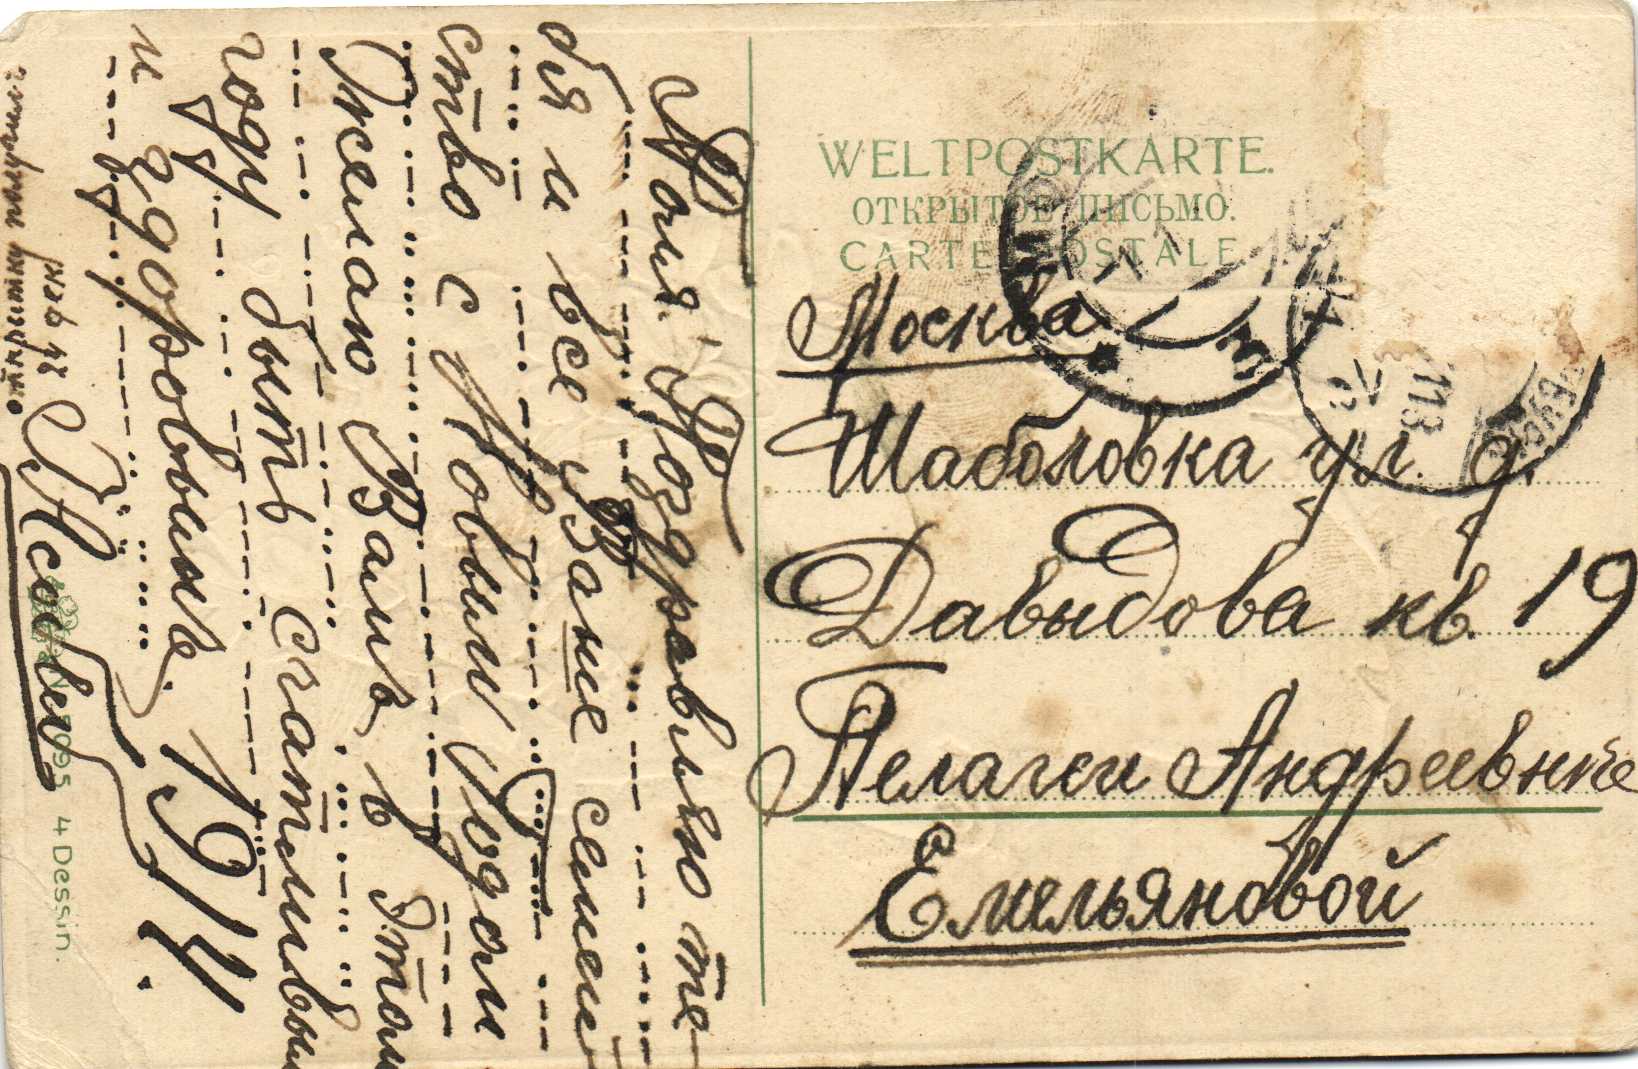 WELTPOSTKARTE.
ОТКРЫТОЕ ПИСЬМО.
CARTE POSTALE
Москва
Шаболовка ул. д.
Давыдова кв. 19
Пелагеи Андреевнѣ
Емельяновой
Поля. Поздравляю те
бя и все Ваше семей
ство с Новым Годом
Желаю Вамъ в этом
году быть счатливым
и здоровыме. 1914.
открытку получил
4 Dessin.